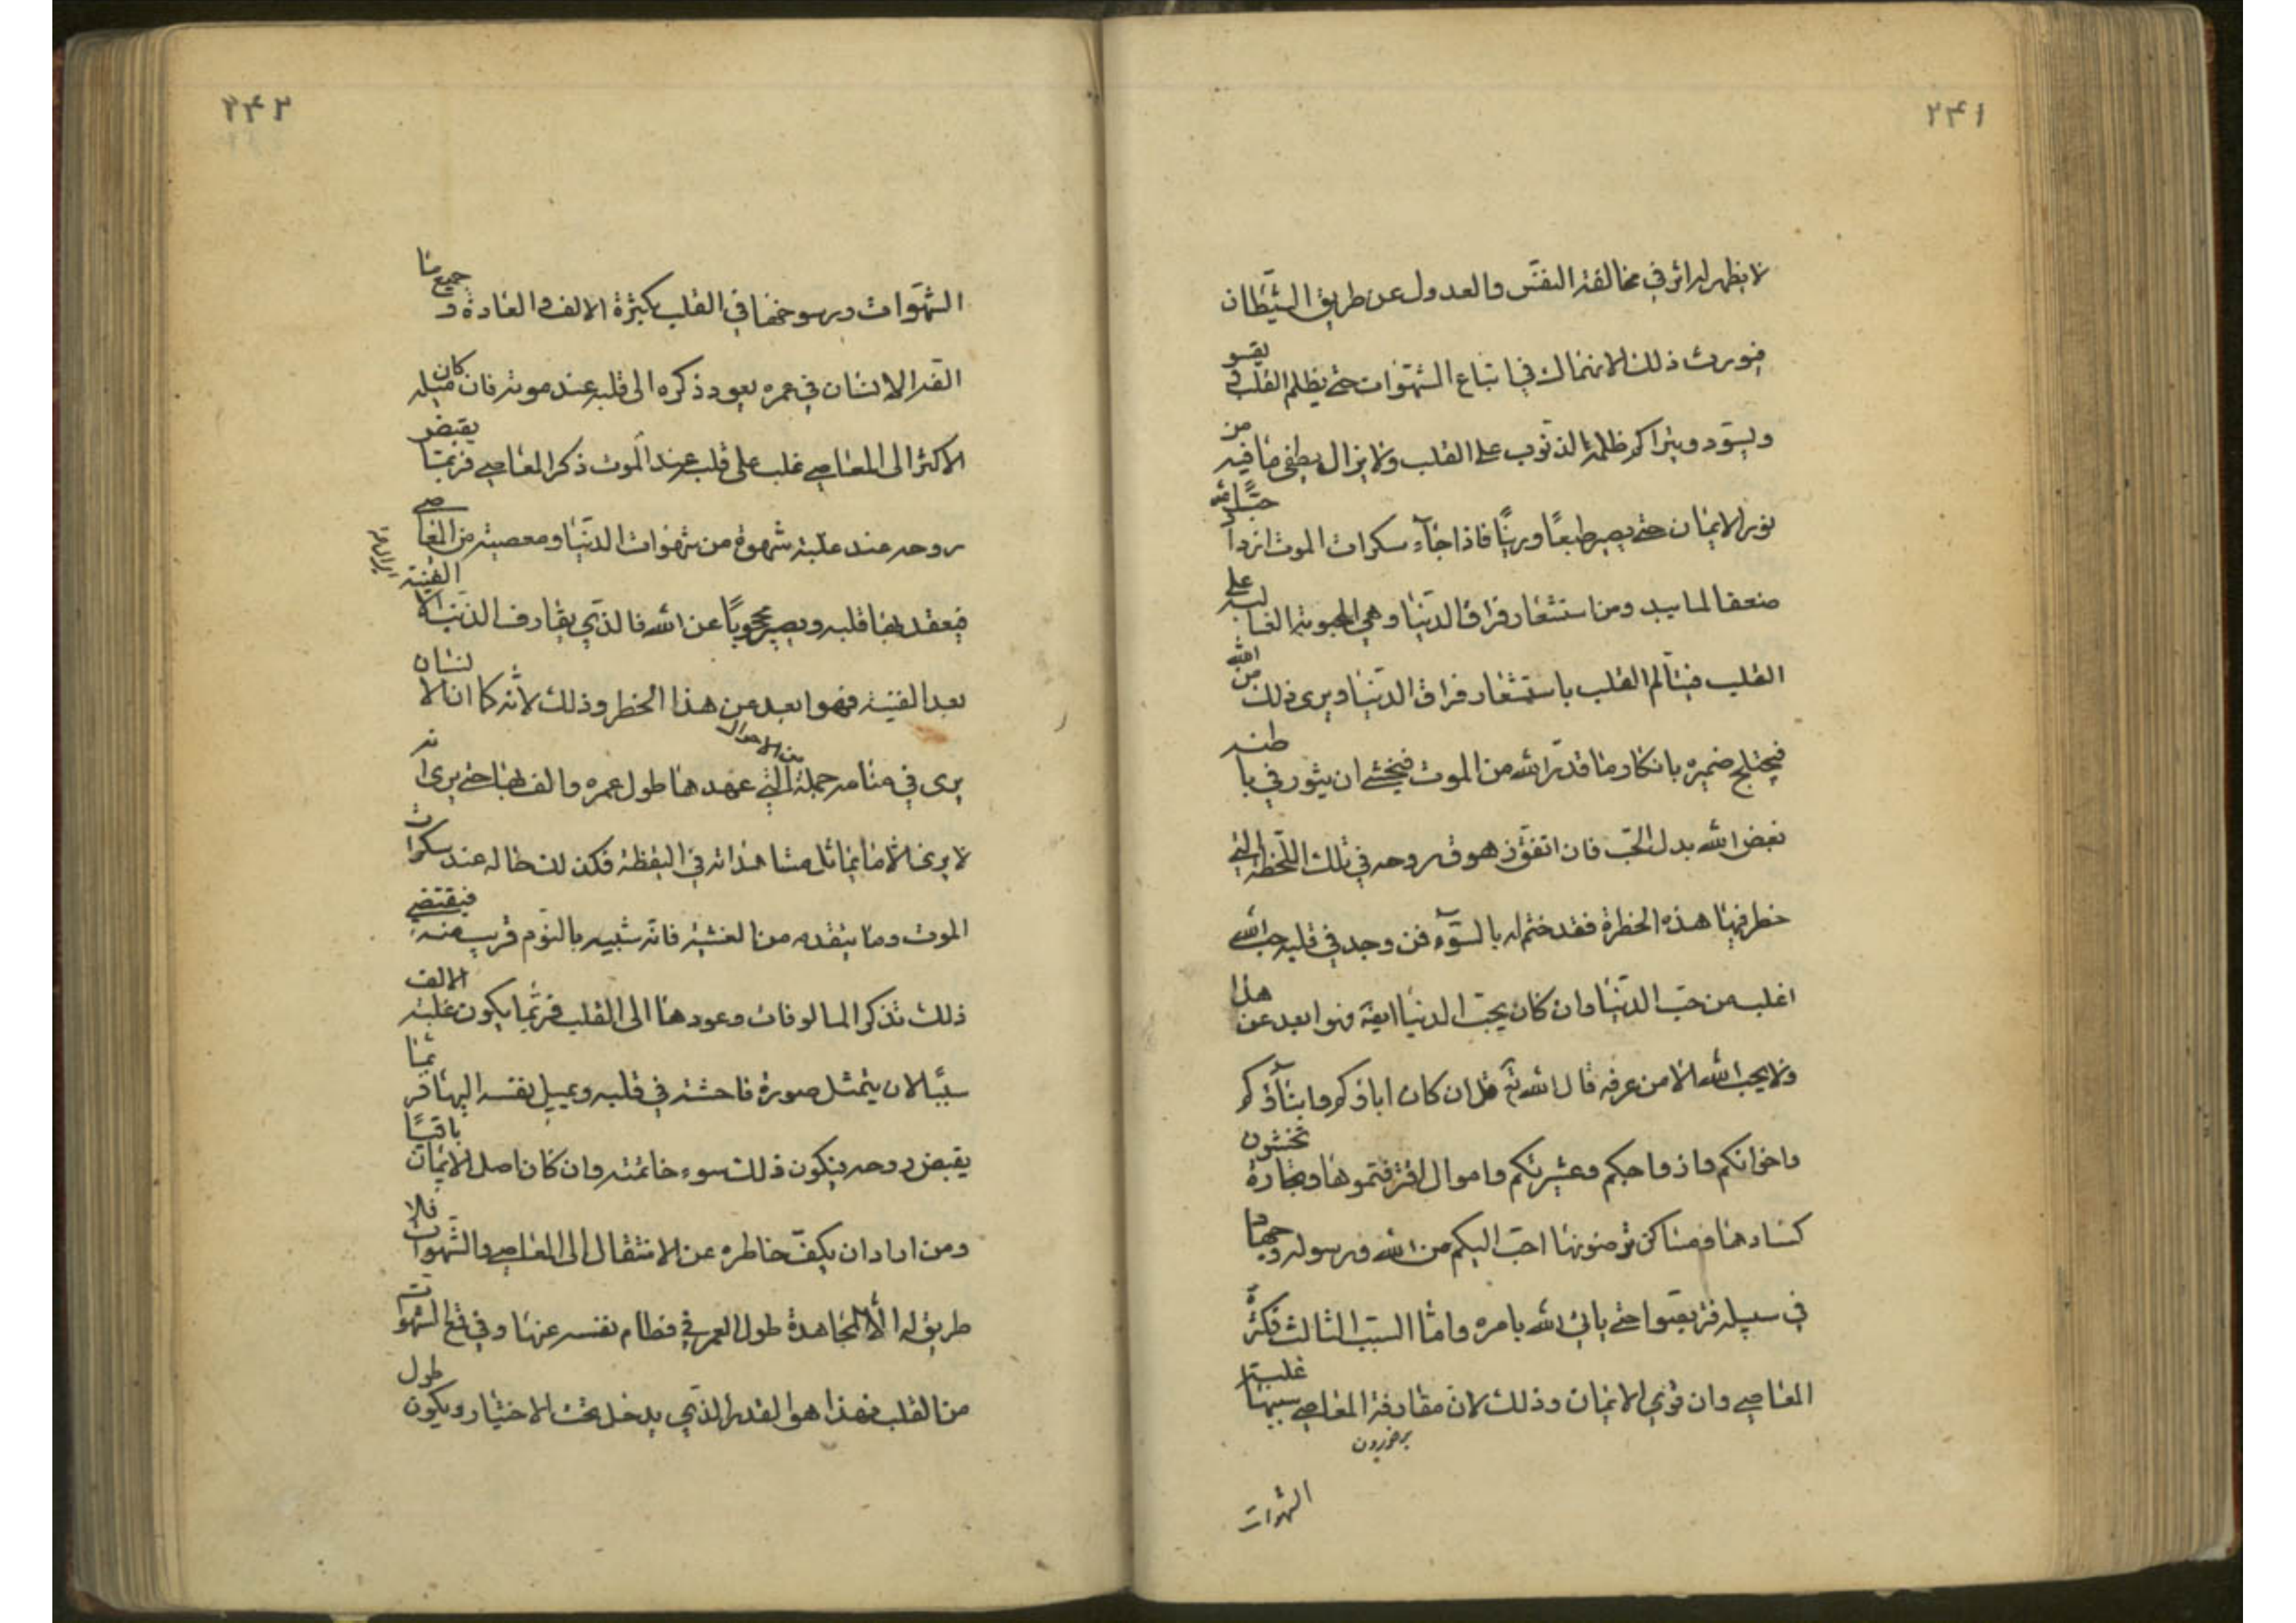 ۲۴۱
لا يظهر له اثر في مخالفة النفس والعدول عن طريق الشيطان
فيورث ذلك الانهماك في اتباع الشهوات حتى يظلم القلب ويقسو
ويسود ويتراكم ظلمة الذنوب على القلب ولا يزال يطفي ما فيه من
نور الايمان حتى يصير طبعًا ورينًا فاذا جاء سكرات الموت ازداد حبّ الله
ضعفا لما يبد ومن استشعار فراق الدنيا وهي المحبوبة الغالبة على
القلب فيتألم القلب باستشعار فراق الدنيا ويرى ذلك من الله
فيختلج ضميره بانكار ما قدّر الله من الموت فيخشى ان يثور في باطنه
بغض الله بدل الحب فان اتفق زهوق روحه في تلك اللحظة التي
خطر فيها هذه الخطرة فقد ختم له بالسوء فمن وجد في قلبه حب الله
اغلب من حب الدنيا وان كان يحب الدنيا ايضا فهو ابعد عن هذا
ولا يحب الله الا من عرفه قال الله تع قل ان كان اباؤكم وابناؤكم
واخوانكم وازواجكم وعشيرتكم واموال اقترفتموها وتجارة تخشون
كسادها ومساكن ترضونها احبّ اليكم من الله ورسوله وجهاد
في سبيله فتربصوا حتى ياتي الله بامره واما السبب الثالث فكثرة
المعاصي وان قوي الايمان وذلك لان مقارفة المعاصي سببها غلبة
الشهوات
۲۴۲
الشهوات ورسوخها في القلب بكثرة الالف والعادة وجميع ما
الفه الانسان في عمره يعود ذكره الى قلبه عند موته فان كان ميله
الاكثر الى المعاصي غلب على قلبه عند الموت ذكر المعاصي فربما يقبض
روحه عند غلبة شهوة من شهوات الدنيا ومعصية من المعاصي
فيعقد بها قلبه ويصير محجوبًا عن الله فالذي يقارف الذنب الا الفينة
بعد الفينة فهو ابعد عن هذا الخطر وذلك لانه كما ان الانسان
يرى في منامه جملة من الاحوال التي عهدها طول عمره والف بها حتى يرى انه
لا يرى الا ما يماثل مشاهداته في اليقظة فكذلك حاله عند سكرات
الموت وما يتقدمه من الغشية فانه شبيه بالنوم قريب منه فيقتضي
ذلك تذكر المالوفات وعودها الى القلب فربما يكون غلبة الالف
سببًا لان يتمثل صورة فاحشة في قلبه ويميل نفسه اليها فربما
يقبض روحه فيكون ذلك سوء خاتمته وان كان اصل الايمان باقيًا
ومن اراد ان يكفّ خاطره عن الانتقال الى المعاصي والشهوات فلا
طريق له الا المجاهدة طول العمر في فطام نفسه عنها وفي قمع الشهوات
من القلب فهذا هو القدر الذي يدخل تحت الاختيار ويكون طول